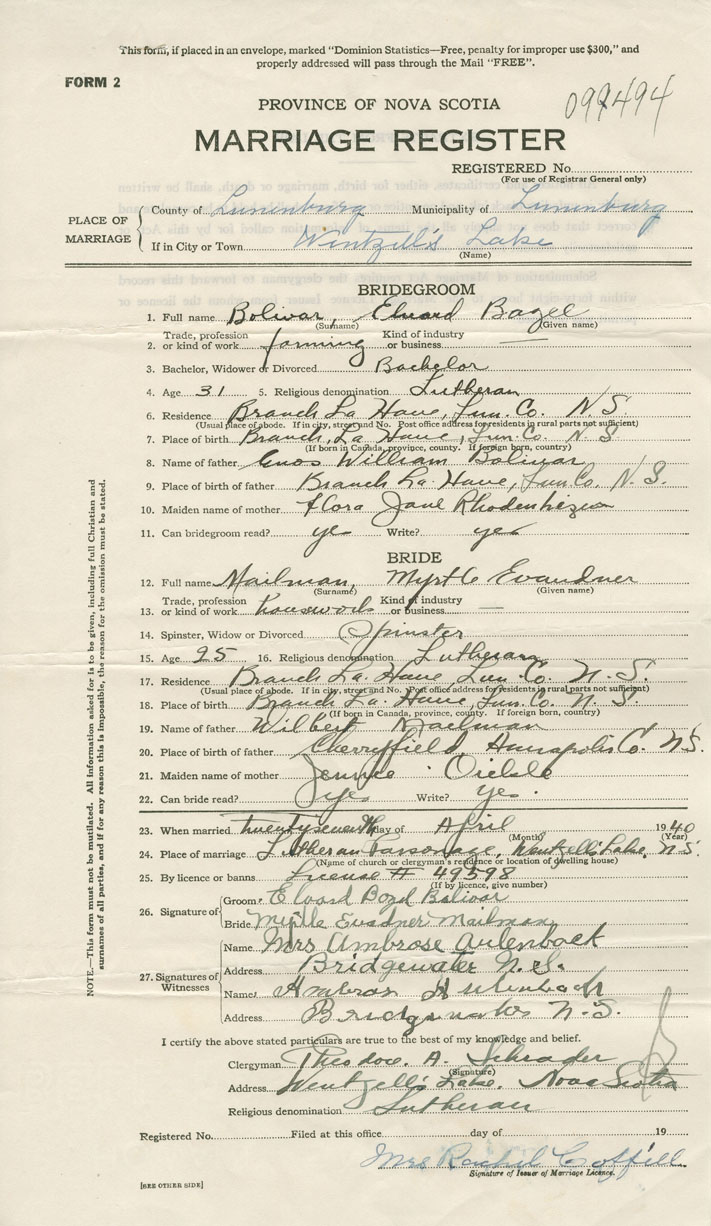 This form, if placed in an envelope, marked "Dominion Statistics—Free, penalty for improper use $300," and
properly addressed will pass through the Mail "FREE".
FORM 2
PROVINCE OF NOVA SCOTIA
MARRIAGE REGISTER
REGISTERED No.
(For use of Registrar General only)
PLACE OF MARRIAGE
County of Lunenburg Municipality of Lunenburg
If in City or Town Wentzell's Lake
(Name)
BRIDEGROOM
1. Full name Bolivar,
(Surname) (Given name)
Trade, profession Kind of industry
2. or kind of work farming or business —
3. Bachelor, Widower or Divorced Bachelor
4. Age 31 5. Religious denomination Lutheran
6. Residence Branch La Have, Lun. Co. N. S.
(Usual place of abode. If in city, street and No. Post office address for residents in rural parts not sufficient)
7. Place of birth Branch, La Have, Lun. Co. N. S.
(If born in Canada, province, county. If foreign born, country)
8. Name of father Enos William Bolivar
9. Place of birth of father Branch La Have, Lun. Co. N. S.
10. Maiden name of mother Flora Jane Rhodenhizer
11. Can bridegroom read? yes Write? yes
BRIDE
12. Full name Mailman, Myrtle
(Surname) (Given name)
Trade, profession Kind of industry
13. or kind of work housework or business —
14. Spinster, Widow or Divorced Spinster
15. Age 25 16. Religious denomination Lutheran
17. Residence Branch La Have, Lun. Co. N. S.
(Usual place of abode. If in city, street and No. Post office address for residents in rural parts not sufficient)
18. Place of birth Branch La Have, Lun. Co. N. S.
(If born in Canada, province, county. If foreign born, country)
19. Name of father Wilbert Mailman
20. Place of birth of father Cherryfield, Annapolis Co. N. S.
21. Maiden name of mother Jennie
22. Can bride read? yes Write? yes.
23. When married twenty seventh day of April 1940
(Month) (Year)
24. Place of marriage Lutheran Parsonage, Wentzell's Lake, N. S.
(Name of church or clergyman's residence or location of dwelling house)
25. By licence or banns License # 49598
(If by licence, give number)
26. Signature of
Groom Boyd Bolivar
Bride Myrtle Evadner Mailman
27. Signatures of Witnesses
Name Mrs Ambrose Aulenback
Address Bridgewater N. S.
Name Aulenback
Address Bridgewater N. S.
I certify the above stated particulars are true to the best of my knowledge and belief.
Clergyman Theodore. A. Schrader
(Signature)
Address Wentzell's Lake, Nova Scotia
Religious denomination Lutheran
Registered No. Filed at this office day of 19
Mrs Rachel Coffill
Signature of Issuer of Marriage Licence.
[SEE OTHER SIDE]
NOTE.—This form must not be mutilated. All information asked for is to be given, including full Christian and
surnames of all parties, and if for any reason this is impossible, the reason for the omission must be stated.